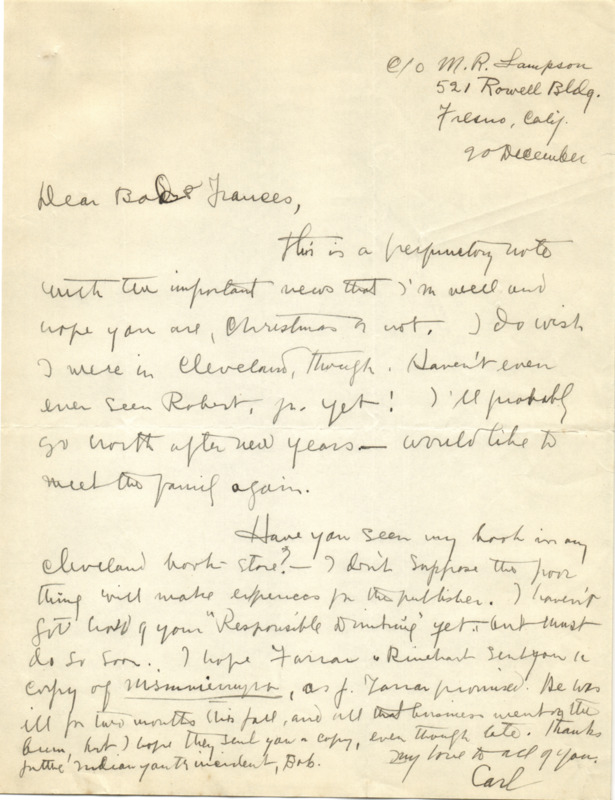 c/o M.R. Sampson
521 Rowell Bldg.
Fresno, Calif.
20 December
Dear Bob & Frances,
This is a perfunctory note
with the important news that I'm well and
hope you are, Christmas or not. I do wish
I were in Cleveland, though. Haven't even
ever seen Robert, jr. yet! I'll probably
go north after new years — would like to
meet the family again.
Have you seen my book in any
Cleveland book-store? — I don't suppose the poor
thing will make expenses for the publisher. I haven't
got hold of your "Responsible Drinking" yet, but must
do so soon. I hope Farrar & Rinehart sent you a
copy of, as J. Farrar promised. He was
ill for two months this fall, and all that business went on the
bum, but I hope they sent you a copy, even though late. Thanks
for the Indian youth incident, Bob.
My love to all of you.
Carl